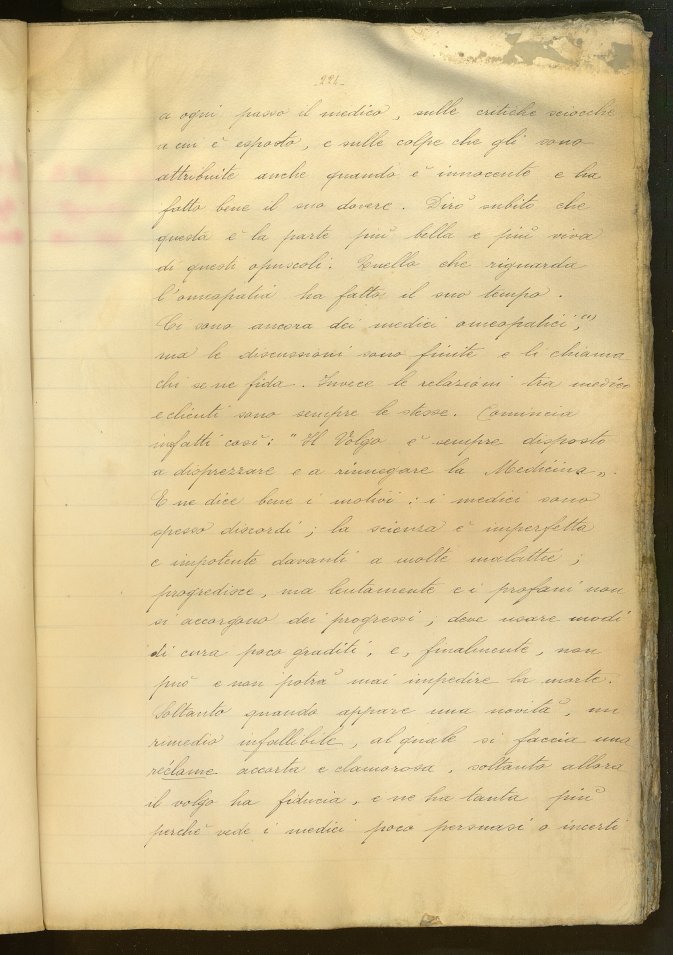 221
a ogni passo il medico, sulle critiche sciocche
a cui è esposto, e sulle colpe che gli sono
attribuite anche quando è innocente e ha
fatto bene il suo dovere. Dirò subito che
questa è la parte più bella e più viva
di questi opuscoli. Quello che riguarda
l'omeopatia ha fatto il suo tempo.
Ci sono ancora dei medici omeopatici,
ma le discussioni sono finite e li chiama
chi se ne fida. Invece le relazioni tra medico
e clienti sono sempre le stesse. Comincia
infatti così: "Il Volgo è sempre disposto
a disprezzare e a rinnegare la Medicina".
E ne dice bene i motivi: i medici sono
spesso discordi; la scienza è imperfetta
e impotente davanti a molte malattie;
progredisce, ma lentamente e i profani non
si accorgono dei progressi; deve usare modi
di cura poco graditi, e, finalmente, non
può e non potrà mai impedire la morte.
Soltanto quando appare una novità, un
rimedio infallibile, al quale si faccia una
réclame accorta e clamorosa, soltanto allora
il volgo ha fiducia, e ne ha tanta più
perchè vede i medici poco persuasi o incerti